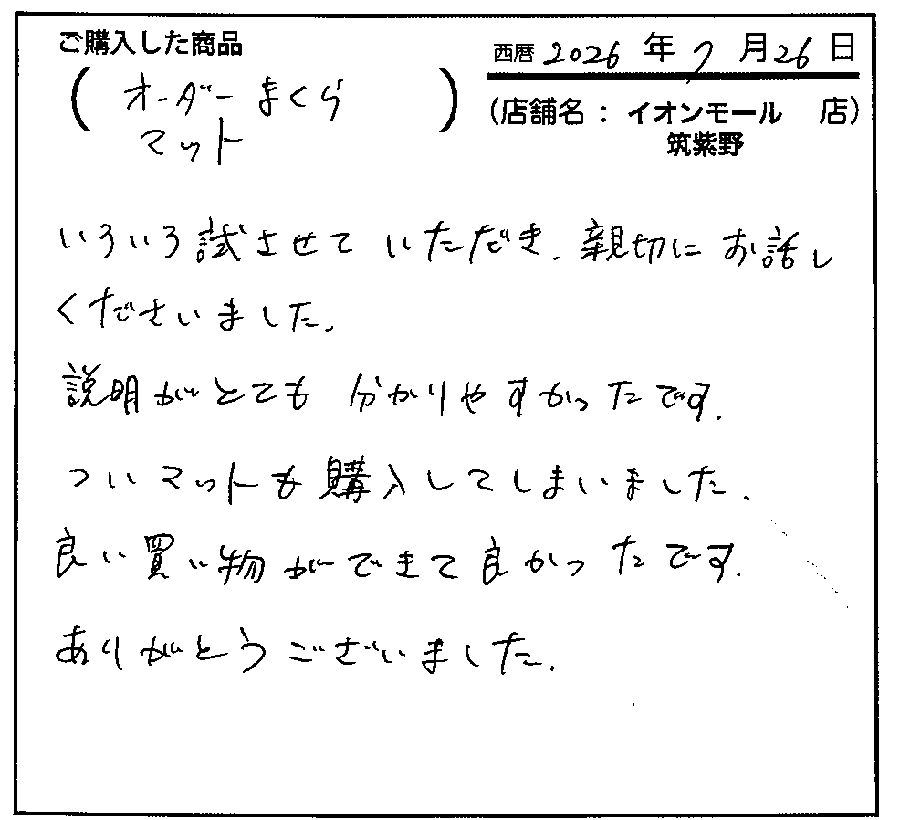 ご購入した商品
西暦 2026 年 7 月 26 日
(オーダーまくら
マット)
(店舗名：イオンモール 店)
筑紫野
いろいろ試させていただき、親切にお話し
くださいました。
説明がとても分かりやすかったです。
ついマットも購入してしまいました。
良い買い物ができて良かったです。
ありがとうございました。